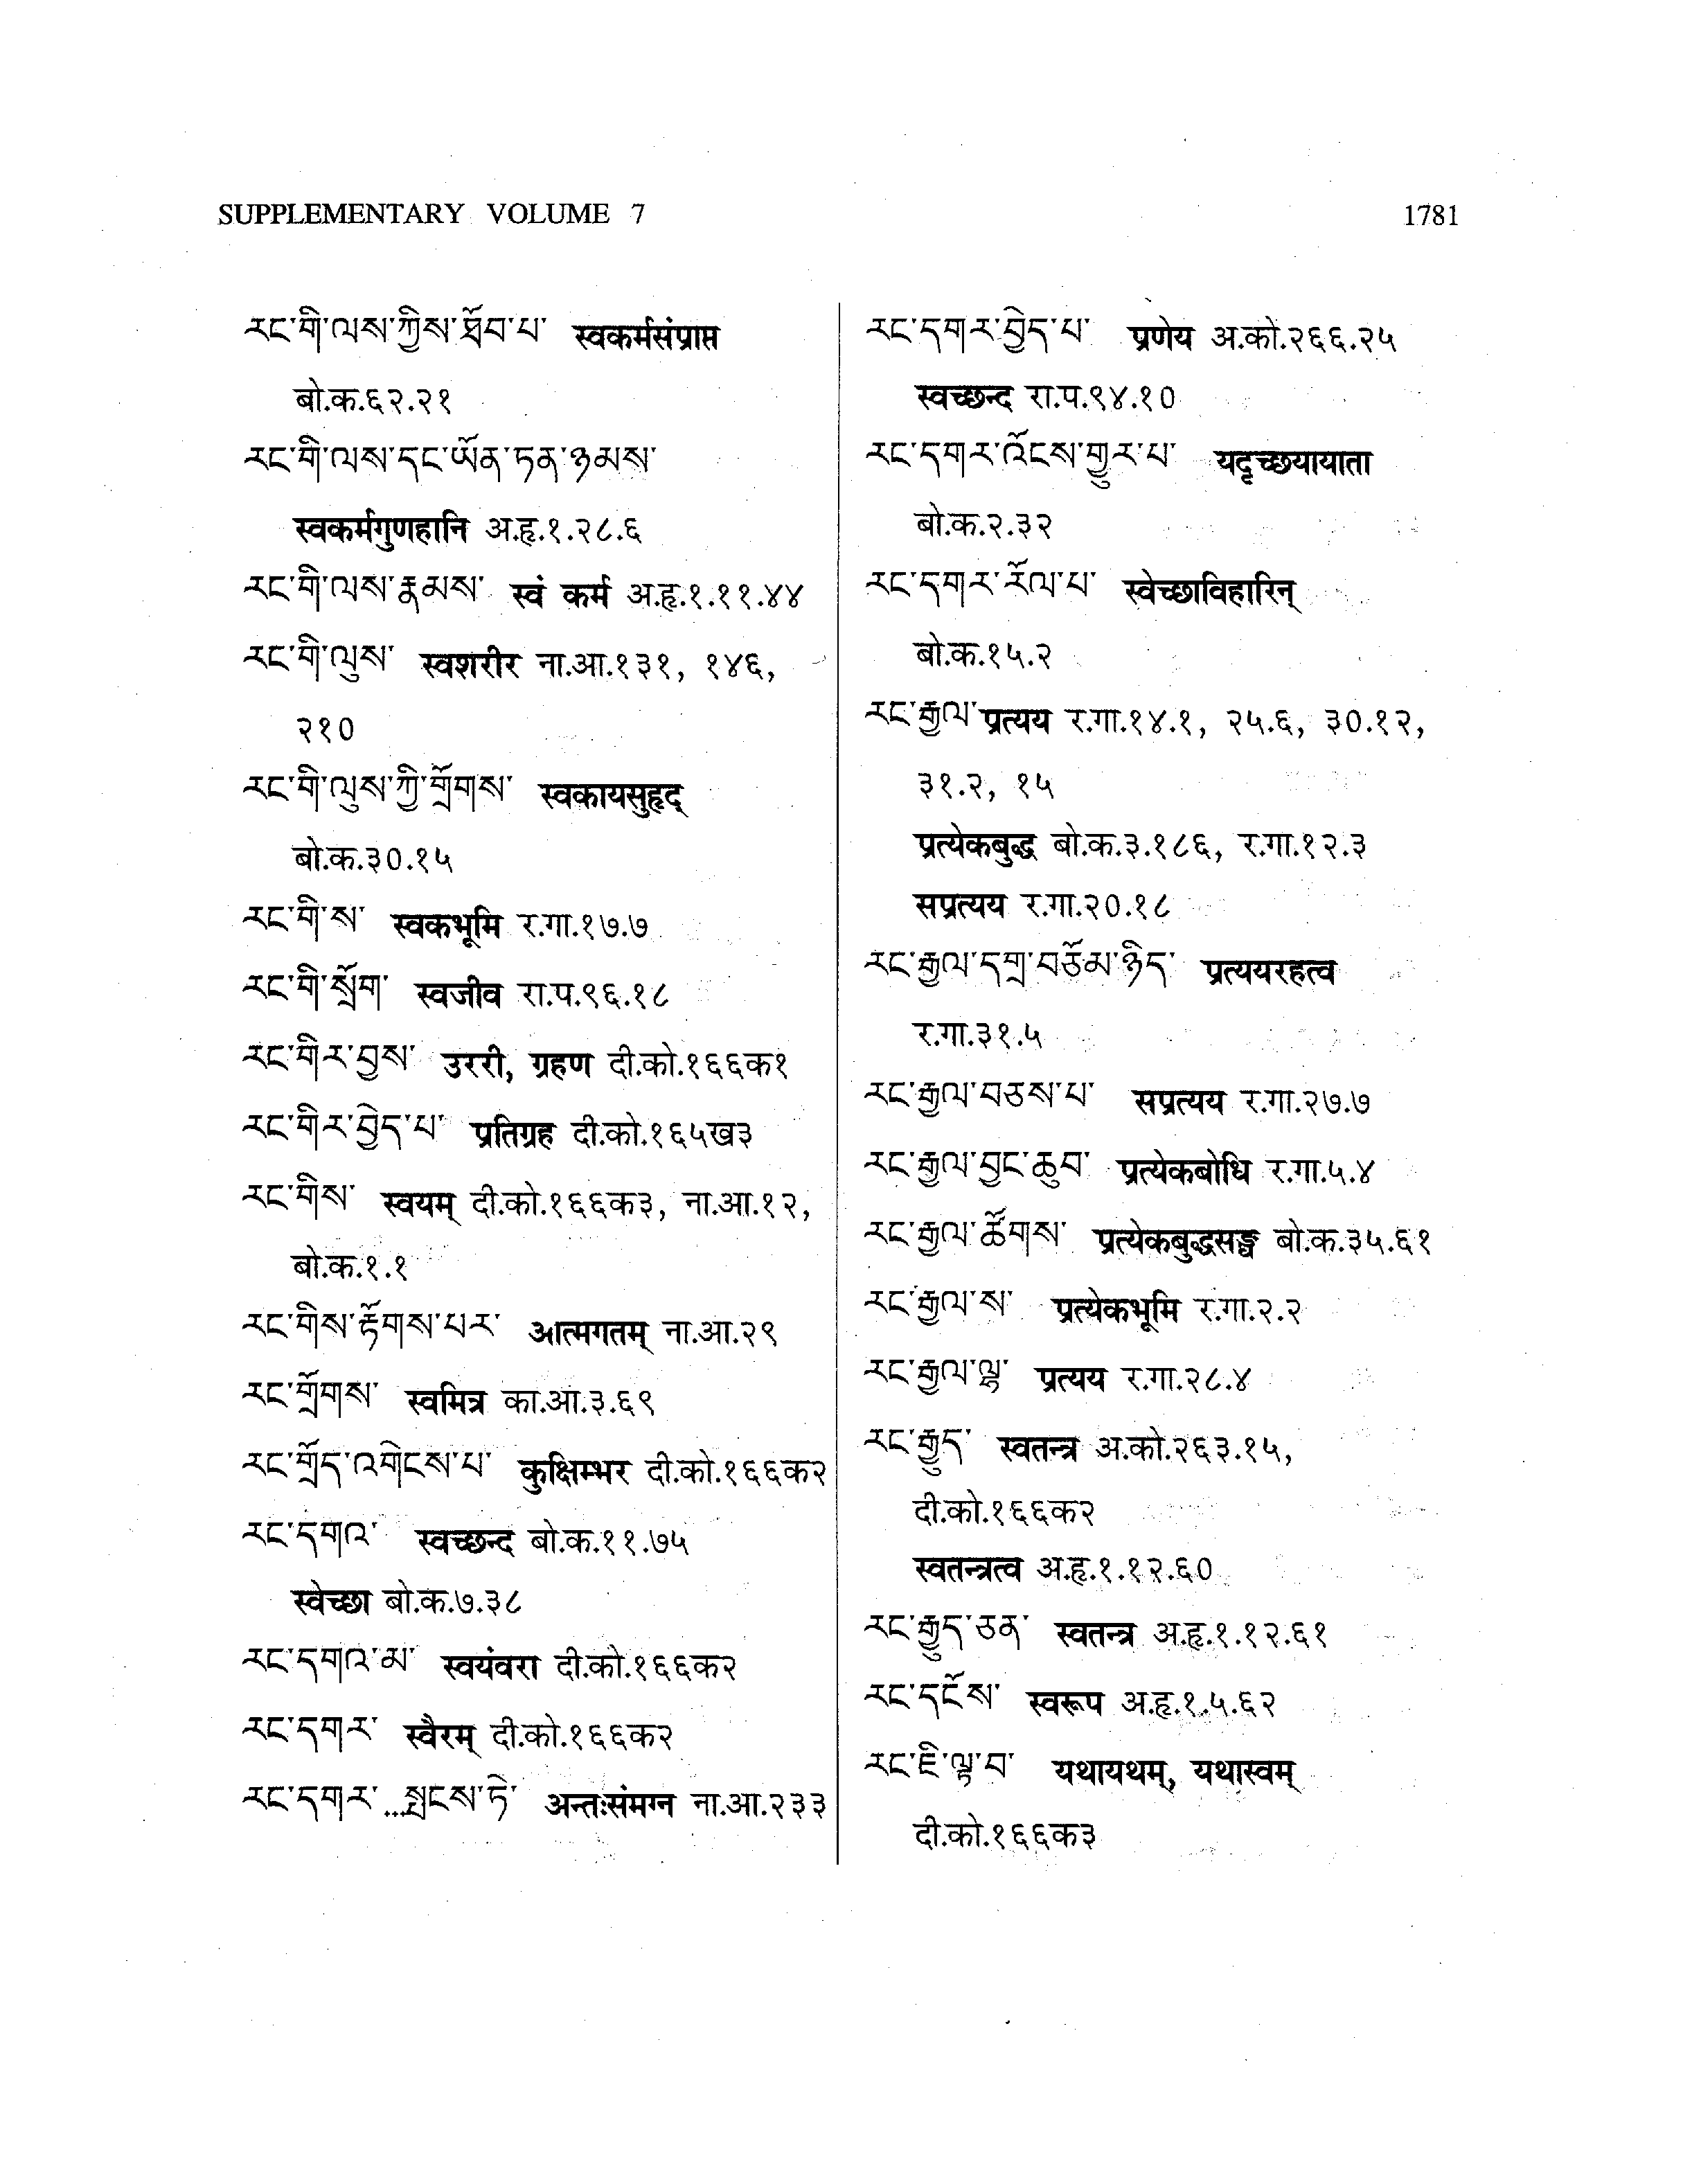 SUPPLEMENTARY VOLUME 7
1781
རང་གི་ལས་ཀྱིས་ཐོབ་པ་ स्वकर्मसंप्राप्त
बो.क.६२.२१
རང་གི་ལས་དང་ཡོན་ཏན་ཉམས་
स्वकर्मगुणहानि अ.हृ.१.२८.६
རང་གི་ལས་རྣམས་ स्वं कर्म अ.हृ.१.११.४४
རང་གི་ལུས་ स्वशरीर ना.आ.१३१, १४६,
२१०
རང་གི་ལུས་ཀྱི་གྲོགས་ स्वकायसुहृद्
बो.क.३०.१५
རང་གི་ས་ स्वकभूमि र.गा.१७.७
རང་གི་སྲོག་ स्वजीव रा.प.९६.१८
རང་གིར་བྱས་ उररी, ग्रहण दी.को.१६६क१
རང་གིར་བྱེད་པ་ प्रतिग्रह दी.को.१६५ख३
རང་གིས་ स्वयम् दी.को.१६६क३, ना.आ.१२,
बो.क.१.१
རང་གིས་རྟོགས་པར་ आत्मगतम् ना.आ.२९
རང་གྲོགས་ स्वमित्र का.आ.३.६९
རང་གྲོད་འགེངས་པ་ कुक्षिम्भर दी.को.१६६क२
རང་དགའ་ स्वच्छन्द बो.क.११.७५
स्वेच्छा बो.क.७.३८
རང་དགའ་མ་ स्वयंवरा दी.को.१६६क२
རང་དགར་ स्वैरम् दी.को.१६६क२
རང་དགར་...སྤངས་ཏེ་ अन्तःसंमग्न ना.आ.२३३
རང་དགར་བྱེད་པ་ प्रणेय अ.को.२६६.२५
स्वच्छन्द रा.प.९४.१०
རང་དགར་འོངས་གྱུར་པ་ यदृच्छयायाता
बो.क.२.३२
རང་དགར་རོལ་པ་ स्वेच्छाविहारिन्
बो.क.१५.२
རང་རྒྱལ་ प्रत्यय र.गा.१४.१, २५.६, ३०.१२,
३१.२, १५
प्रत्येकबुद्ध बो.क.३.१८६, र.गा.१२.३
सप्रत्यय र.गा.२०.१८
རང་རྒྱལ་དགྲ་བཅོམ་ཉིད་ प्रत्ययरहत्व
र.गा.३१.५
རང་རྒྱལ་བཅས་པ་ सप्रत्यय र.गा.२७.७
རང་རྒྱལ་བྱང་ཆུབ་ प्रत्येकबोधि र.गा.५.४
རང་རྒྱལ་ཚོགས་ प्रत्येकबुद्धसङ्घ बो.क.३५.६१
རང་རྒྱལ་ས་ प्रत्येकभूमि र.गा.२.२
རང་རྒྱལ་ལྷ་ प्रत्यय र.गा.२८.४
རང་རྒྱུད་ स्वतन्त्र अ.को.२६३.१५,
दी.को.१६६क२
स्वतन्त्रत्व अ.हृ.१.१२.६०
རང་རྒྱུད་ཅན་ स्वतन्त्र अ.हृ.१.१२.६१
རང་དངོས་ स्वरूप अ.हृ.१.५.६२
རང་ཇི་ལྟ་བ་ यथायथम्, यथास्वम्
दी.को.१६६क३